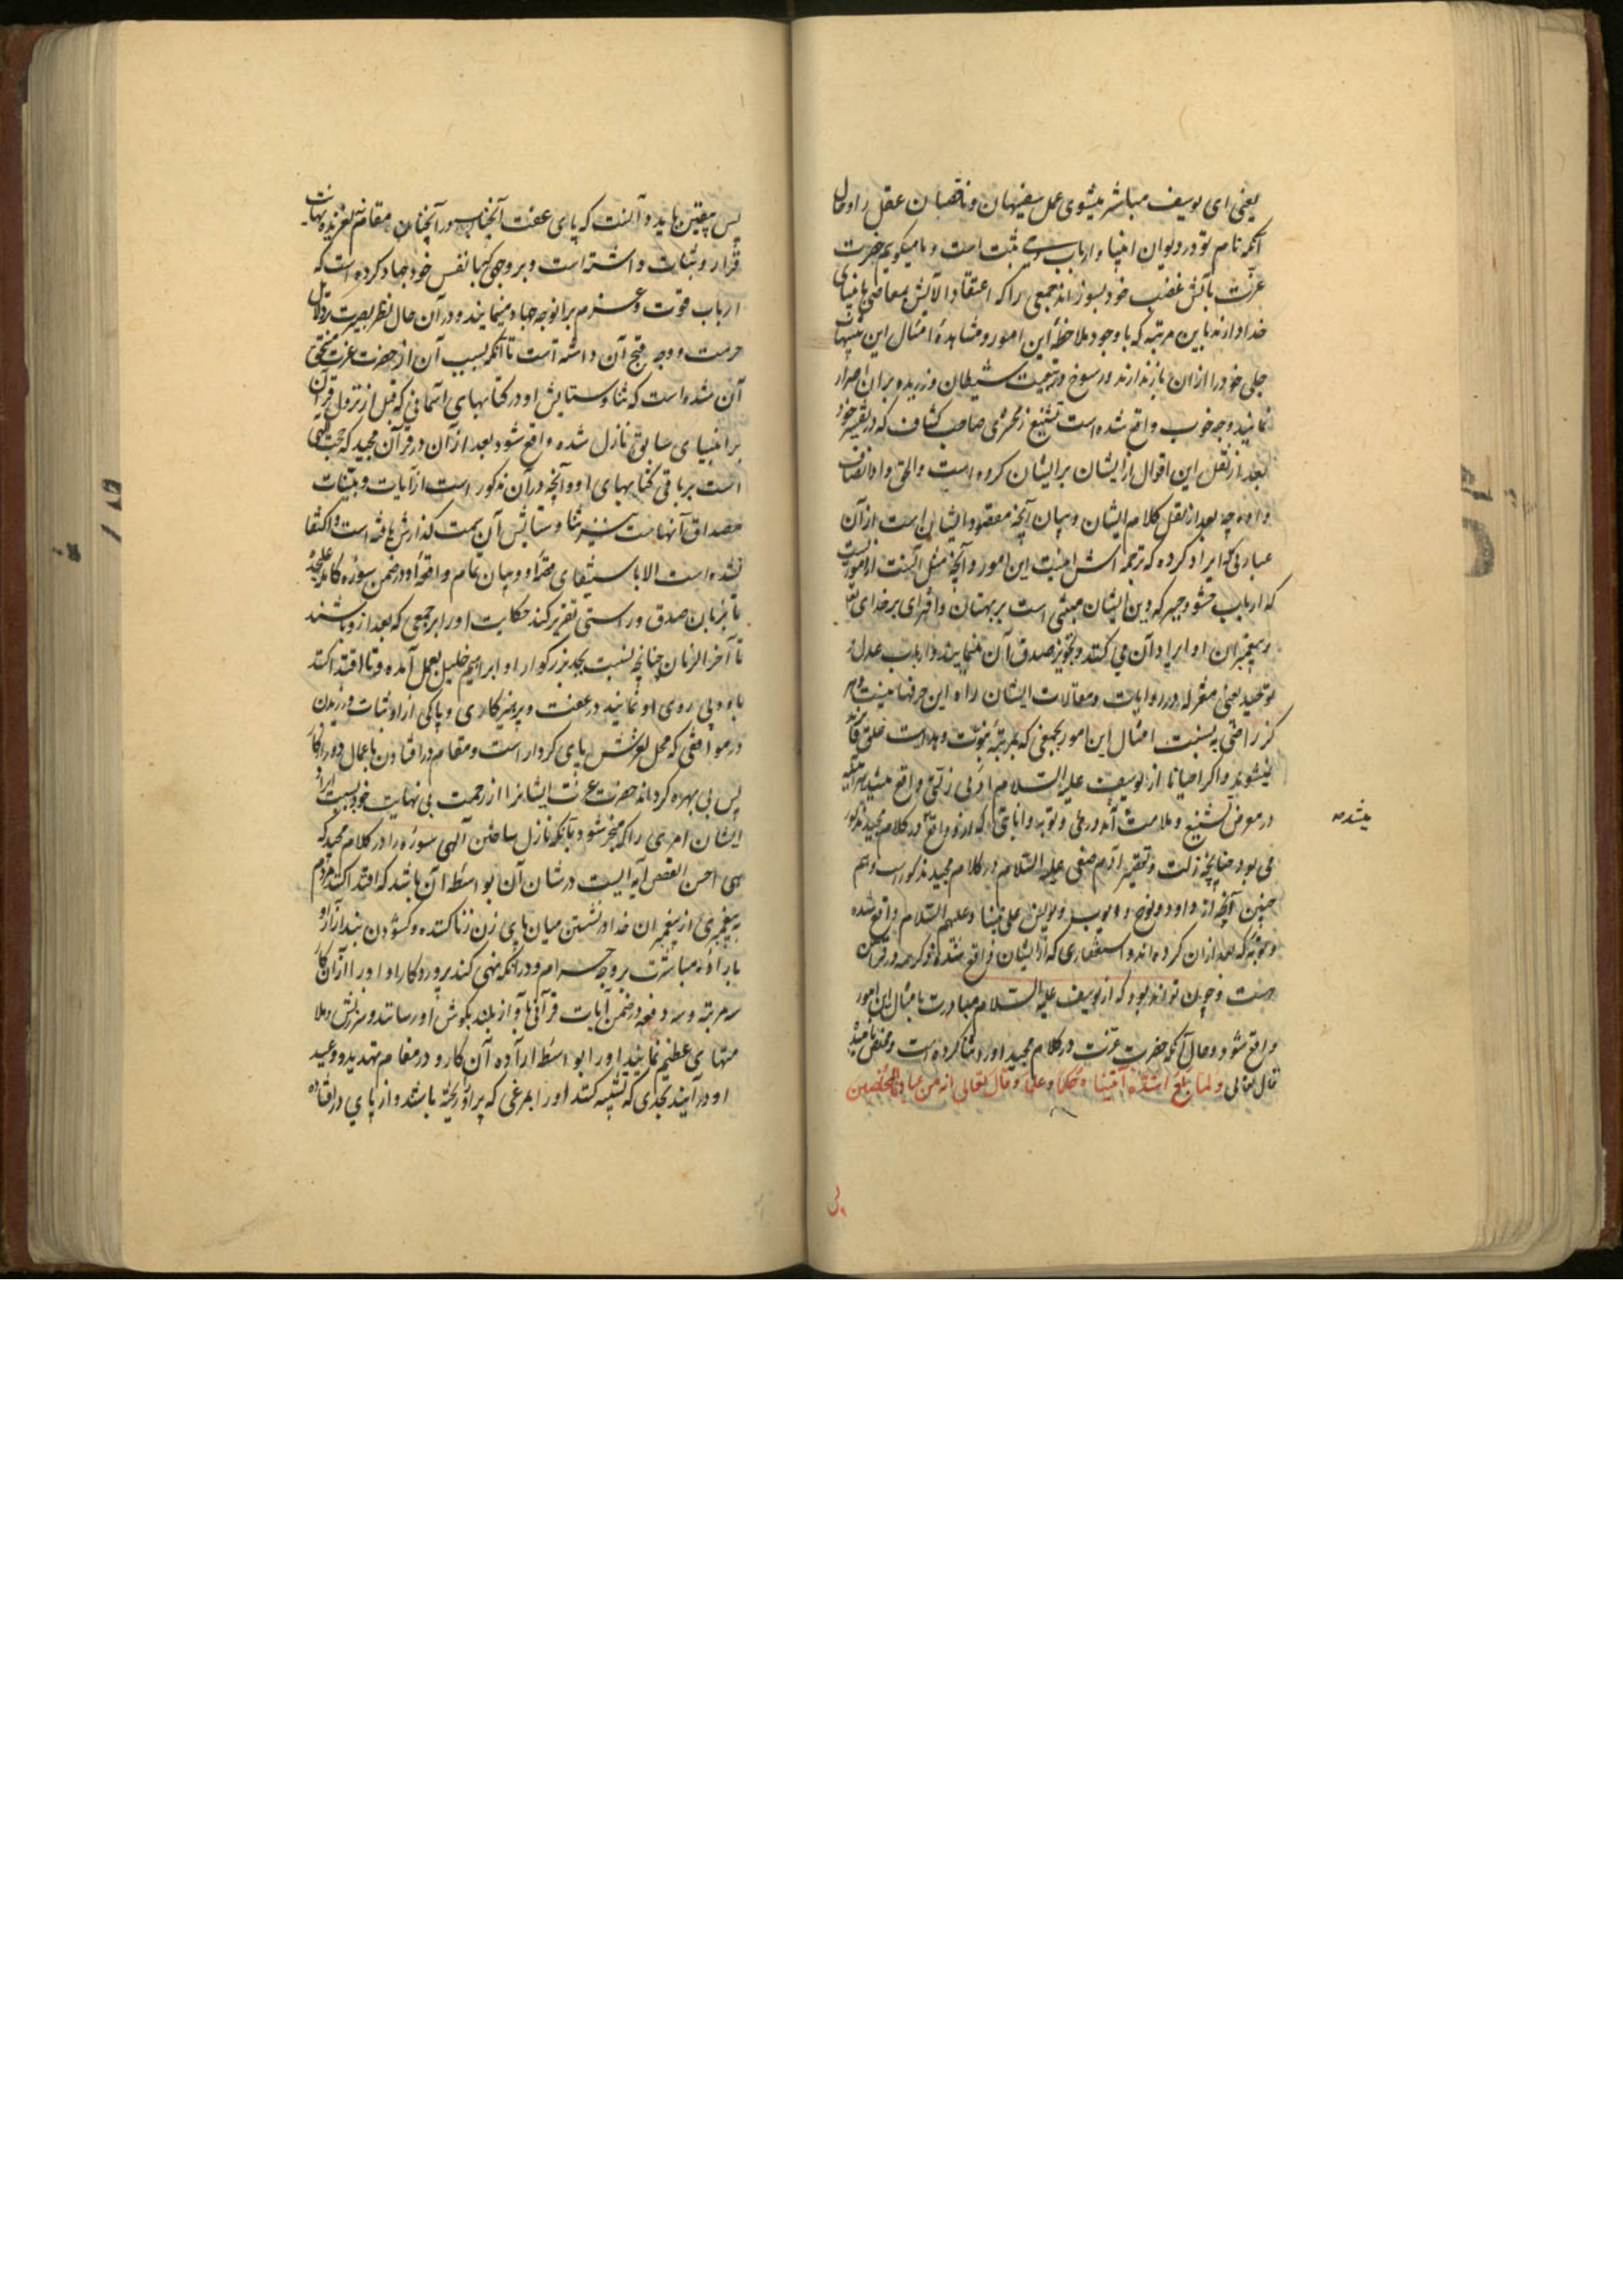 یعنی ای یوسف مباشر میشوی عمل سفیهان و ناقصان عقل را و حال
آنکه نام تو در دیوان انبیا و ارباب ثبت است و ما میکویم حضرت
عزت بآتش غضب خود بسوزاند جمعی را که اعتقاد آلایش بمعاصی بانبیای
خدا دارند باین مرتبه که با وجود ملاحظهٔ این امور و مشاهدهٔ امثال این تنبیهات
جلی خود را ازان باز ندارند و رسوخ در تبعیت شیطان ورزیده بران اصرار
نمایند و چه خوب واقع شده است تشنیع زمخشری صاحب کشاف که در تفسیر خود
بعد از نقل این اقوال از ایشان بر ایشان کرده است والحق داد انصاف
داده چه بعد از نقل کلام ایشان و بیان آنچه مقصود ایشان است از آن
عبارتی ایراد کرده که ترجمه اش اینست این امور و آنچه مثل آنست از امور است
که ارباب حشو و جبر که دین ایشان مبنی است بر بهتان و افترای بر خدای تعالی
و پیغمبران او ایراد آن می کنند و تجویز صدق آن مینمایند و ارباب عدل و
توحید یعنی معتزله در روایات و مقالات ایشان راه این حرفها نیست و هر
کز راضی به نسبت امثال این امور بجمعی که بمرتبهٔ نبوت و هدایت خلق فایزند
نمیشوند و اکر احیانا از یوسف علیه السلام ادنی زلتی واقع میشد هر آینه
در معرض تشنیع و ملامت آمدی و توبه و انابتی که ازو واقع در کلام مجید مذکور
می بود چنانچه زلت و تقصیر آدم صفی علیه السلام در کلام مجید مذکور است و هم
چنین آنچه از داود و نوح و ایوب و یونس علی نبینا و علیهم السلام واقع شده
و توبه که بعد ازان کرده اند و استغفاری که از ایشان واقع شده مذکور همه در قرآن
هست و چون تواند بود که از یوسف علیه السلام مبادرت بامثال این امور
واقع شود و حال آنکه حضرت عزت در کلام مجید او را ثنا کرده است و مخلص نامیده
قال تعالی ولما بلغ اشده آتیناه حکما وعلما وقال تعالی انه من عبادنا المخلصین
میشد صه
پس متیقن باید دانست که پای عفت آنجناب در آنچنان مقام نلغزیده بهایت
قرار و ثبات داشته است و بر وجهی با نفس خود جهاد کرده است که
ارباب قوت و عزم برانوجه جهاد مینمایند و در آن حال نظر بصیرت بر دلایل
حرمت و وجه قبح آن داشته است تا آنکه بسبب آن از حضرت عزت مستحق
آن شده است که ثنا و ستایش او در کتابهای آسمانی که قبل از نزول قرآن
بر انبیای سابق نازل شده واقع شود بعد از آن در قرآن مجید که حجت
است بر باقی کتابهای او و آنچه در آن مذکور است از آیات و بینات
مصداق آنهاست نیز ثنا و ستایش آن بسمت کذارش یافته است و اکتفا
نشده است الا باستیفای قصهٔ او و بیان تمام واقعهٔ او در ضمن سورهٔ کامله علیحده
تا بزبان صدق و راستی تقریر کند حکایت او را بر جمعی که بعد از و باشند
تا آخر الزمان چنانچه نسبت بجد بزرکوار او ابراهیم خلیل بعمل آمده و تا اقتدا کنند
باو و پی روی او نمایند در عفت و پرهیزکاری و پاکی ازار و ثبات ورزیدن
در مواقفی که محل لغزش پای کردار است و مقام در افتادن باعمال دور از کار
پس بی بهره کرداند حضرت عزت ایشانرا از رحمت بی نهایت خود بسبب ایراد
ایشان امری را که منجر شود بآنکه نازل ساختن آلهی سوره را در کلام مجید که
احسن القصص آیه ایست در شان آن بواسطه آن باشد که اقتدا کنند مردم
به پیغمبری از پیغمبران خدا در نشستن میان پای زن زنا کننده و کشودن بند ازار او
بارادهٔ مباشرت بر وجه حرام و در آنکه نهی کند پروردکار او او را ازان کار
سه مرتبه و سه دفعه در ضمن آیات قرآنی بآواز بلند بکوش او رسانند و سرزنش و ملا
متهای عظیم نمایند او را بواسطهٔ ارادهٔ آن کار و در مقام تهدید و وعید
او در آیند بحدی که تشبیه کنند او را بمرغی که پر او ریخته باشد و از پای در افتاده